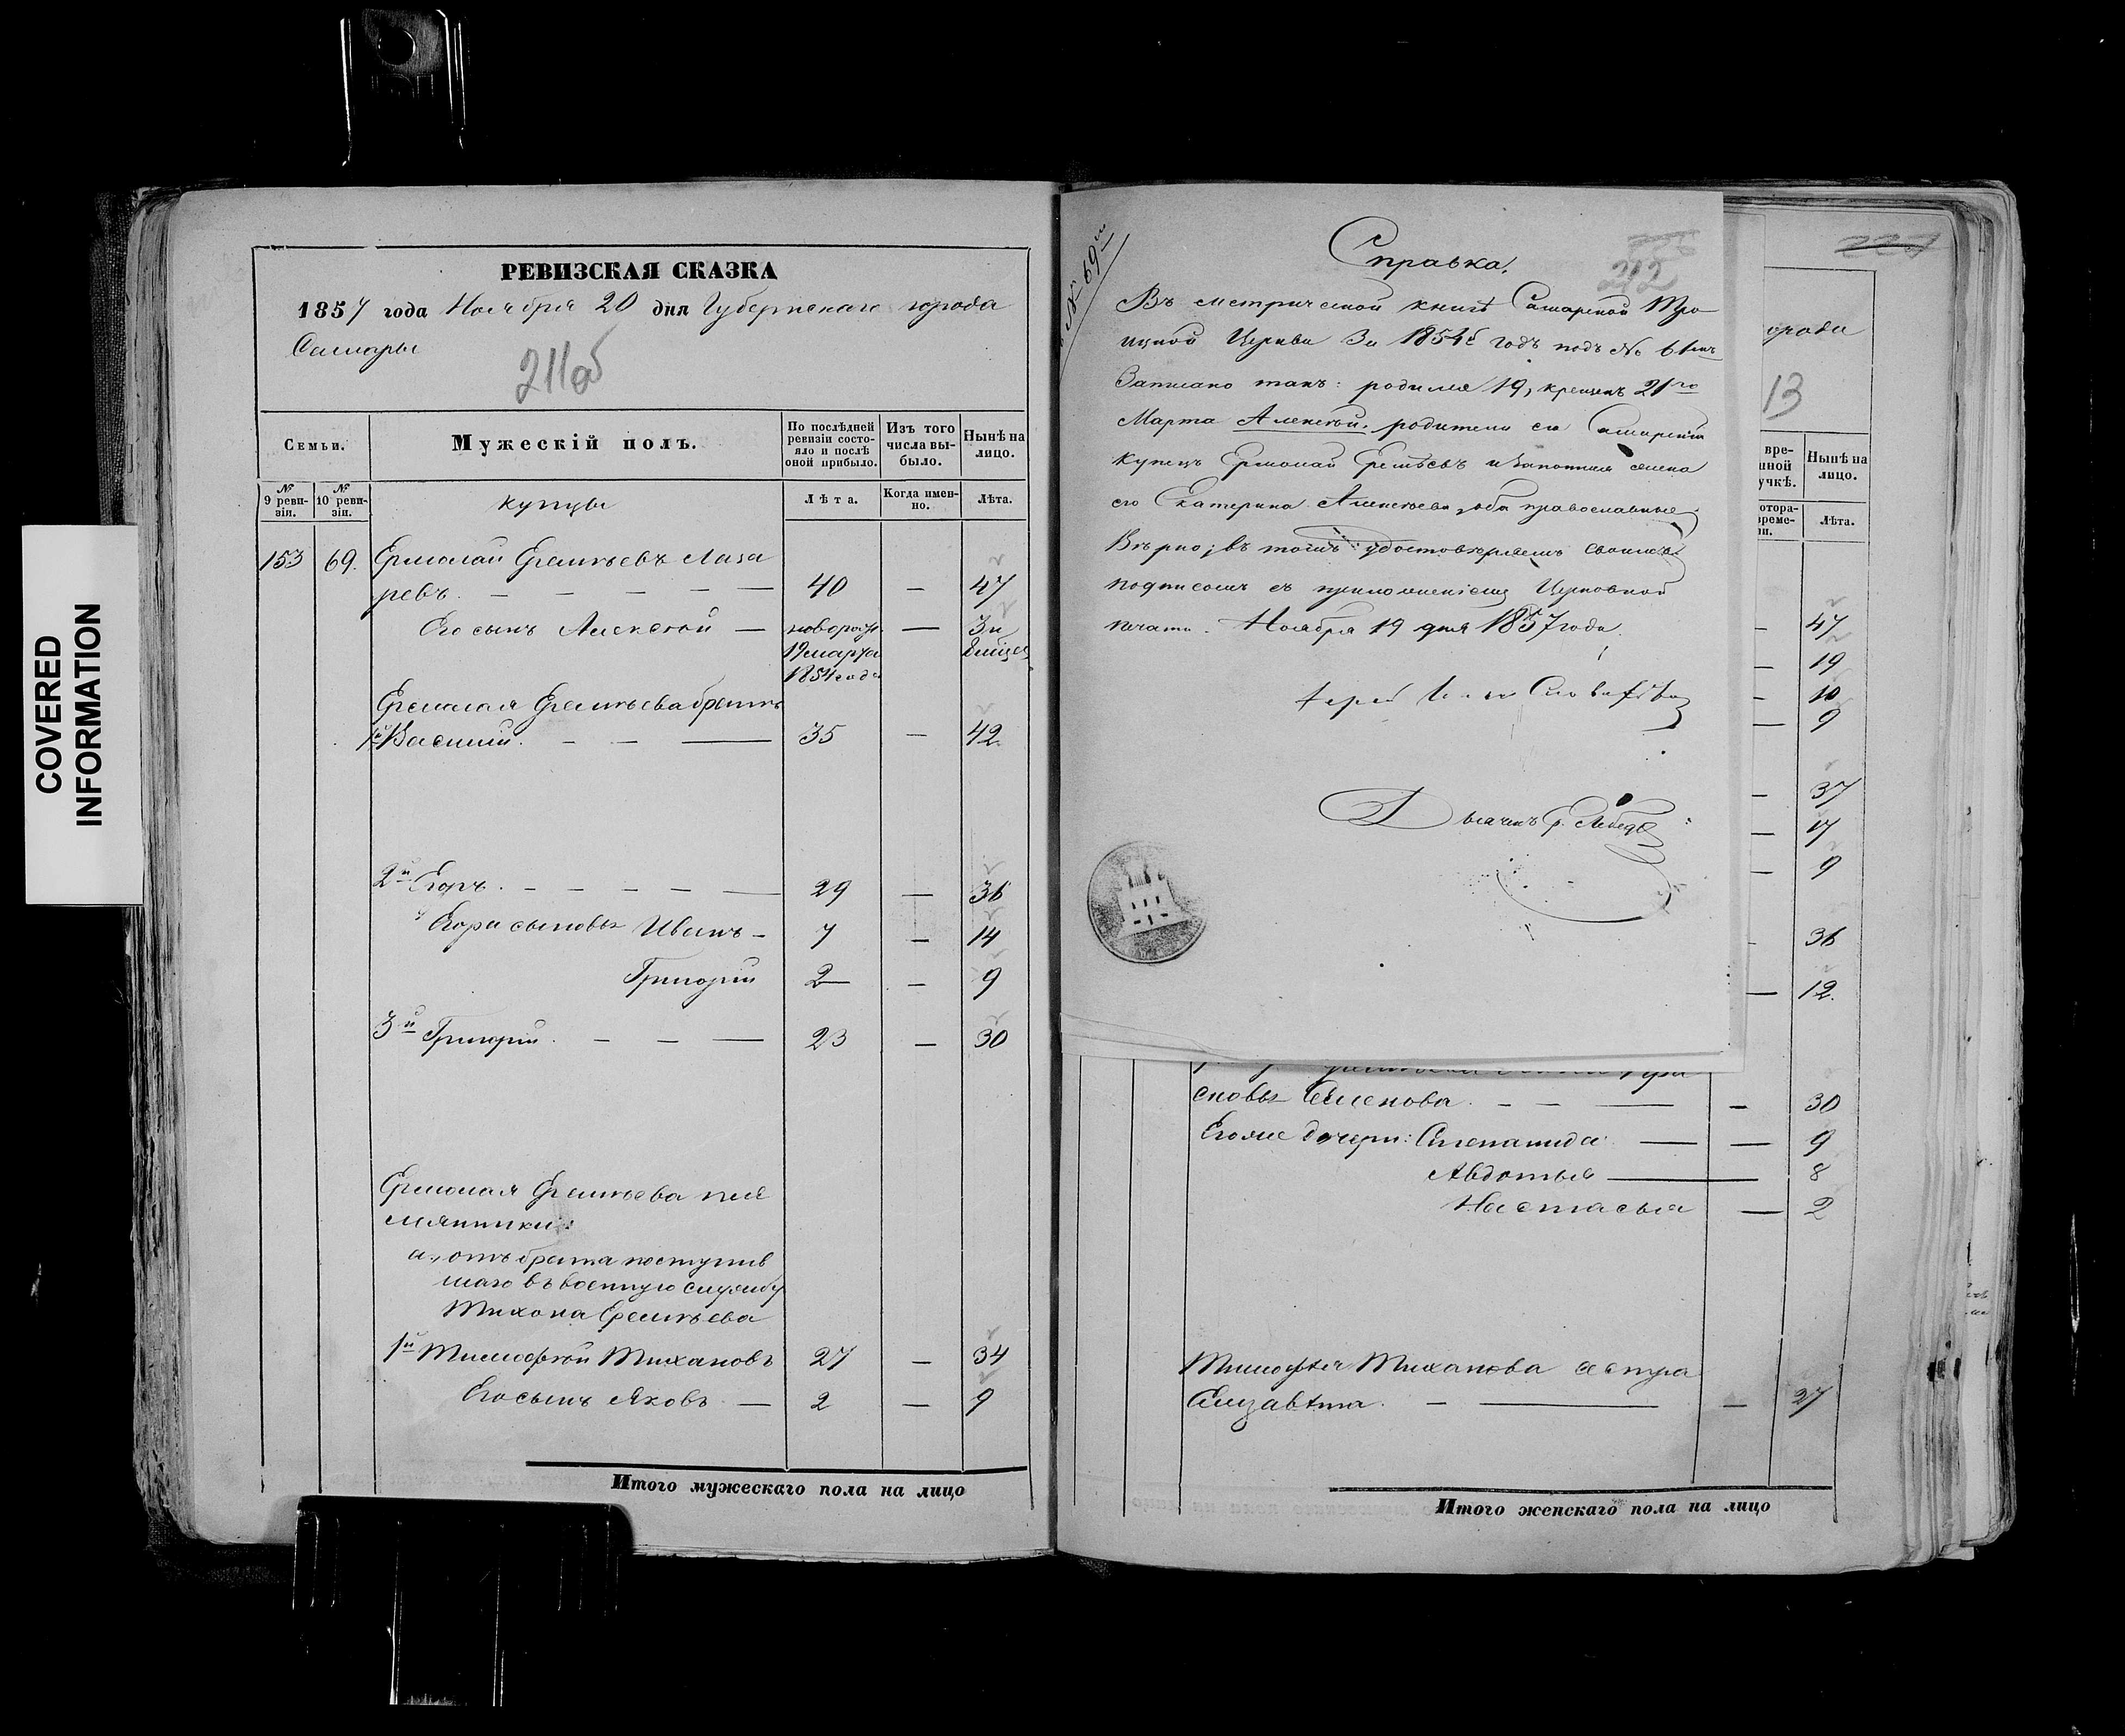 COVERED
INFORMATION
РЕВИЗСКАЯ СКАЗКА
1857 года Ноября 20 дня Губернскаго города
Самары
211об
Семьи.
Мужескій полъ.
По послѣдней ревизіи состояло и послѣ оной прибыло.
Изъ того числа выбыло.
Нынѣ на лицо.
№ 9 ревизіи.
№ 10 ревизіи.
купцы
Лѣта.
Когда именно.
Лѣта.
153 69. Ермолай Еремѣевъ Лаза
ревъ. — — — — — 40 — 47
Его сынъ Алексѣй — новорож. — 3 и
19 марта 8 мѣся.
1854 года
Ермолая Еремѣева братья
1й Василій. — — — 35 — 42.
2й Егоръ. — — — — — 29 — 36
Егора сыновья Иванъ — 7 — 14
Григорій 2 — 9
3й Григорій. — — — 23 — 30
Ермолая Еремѣева пле
мянники:
а., отъ брата поступив
шаго въ военную службу
Тихона Еремѣева
1й Тимофей Тихановъ 27 — 34
Его сынъ Яковъ. — 2 — 9
Итого мужескаго пола на лицо
№ 69й
Справка.
212
Въ метрической книгѣ Самарской Тро
ицкой Церкви за 1854й годъ подъ № 61мъ
Записано такъ: родился 19, крещенъ 21го
Марта Алексѣй, родители его Самарскій
купецъ Ермолай Еремѣевъ и законная жена
его Екатерина Алексѣева, оба православные.
Вѣрно; въ томъ удостовѣряемъ своимъ
подписомъ съ приложеніемъ Церковной
печати. Ноября 19 дня 1857 года.
Іерей
Дьячекъ
227
орода
13
вре-
нной
учкѣ.
Нынѣ на
лицо.
отора-
време-
ни.
Лѣта.
— 47
— 19
— 10
— 9
— 37
— 17
— 9
— 36
— 12.
сновья Семенова. — — — — 30
Его же дочери: Степанида — — 9
Авдотья — 8
Настасья — 2
Тимофея Тиханова сестра
Елизавѣта. — — — 27
Итого женскаго пола на лицо